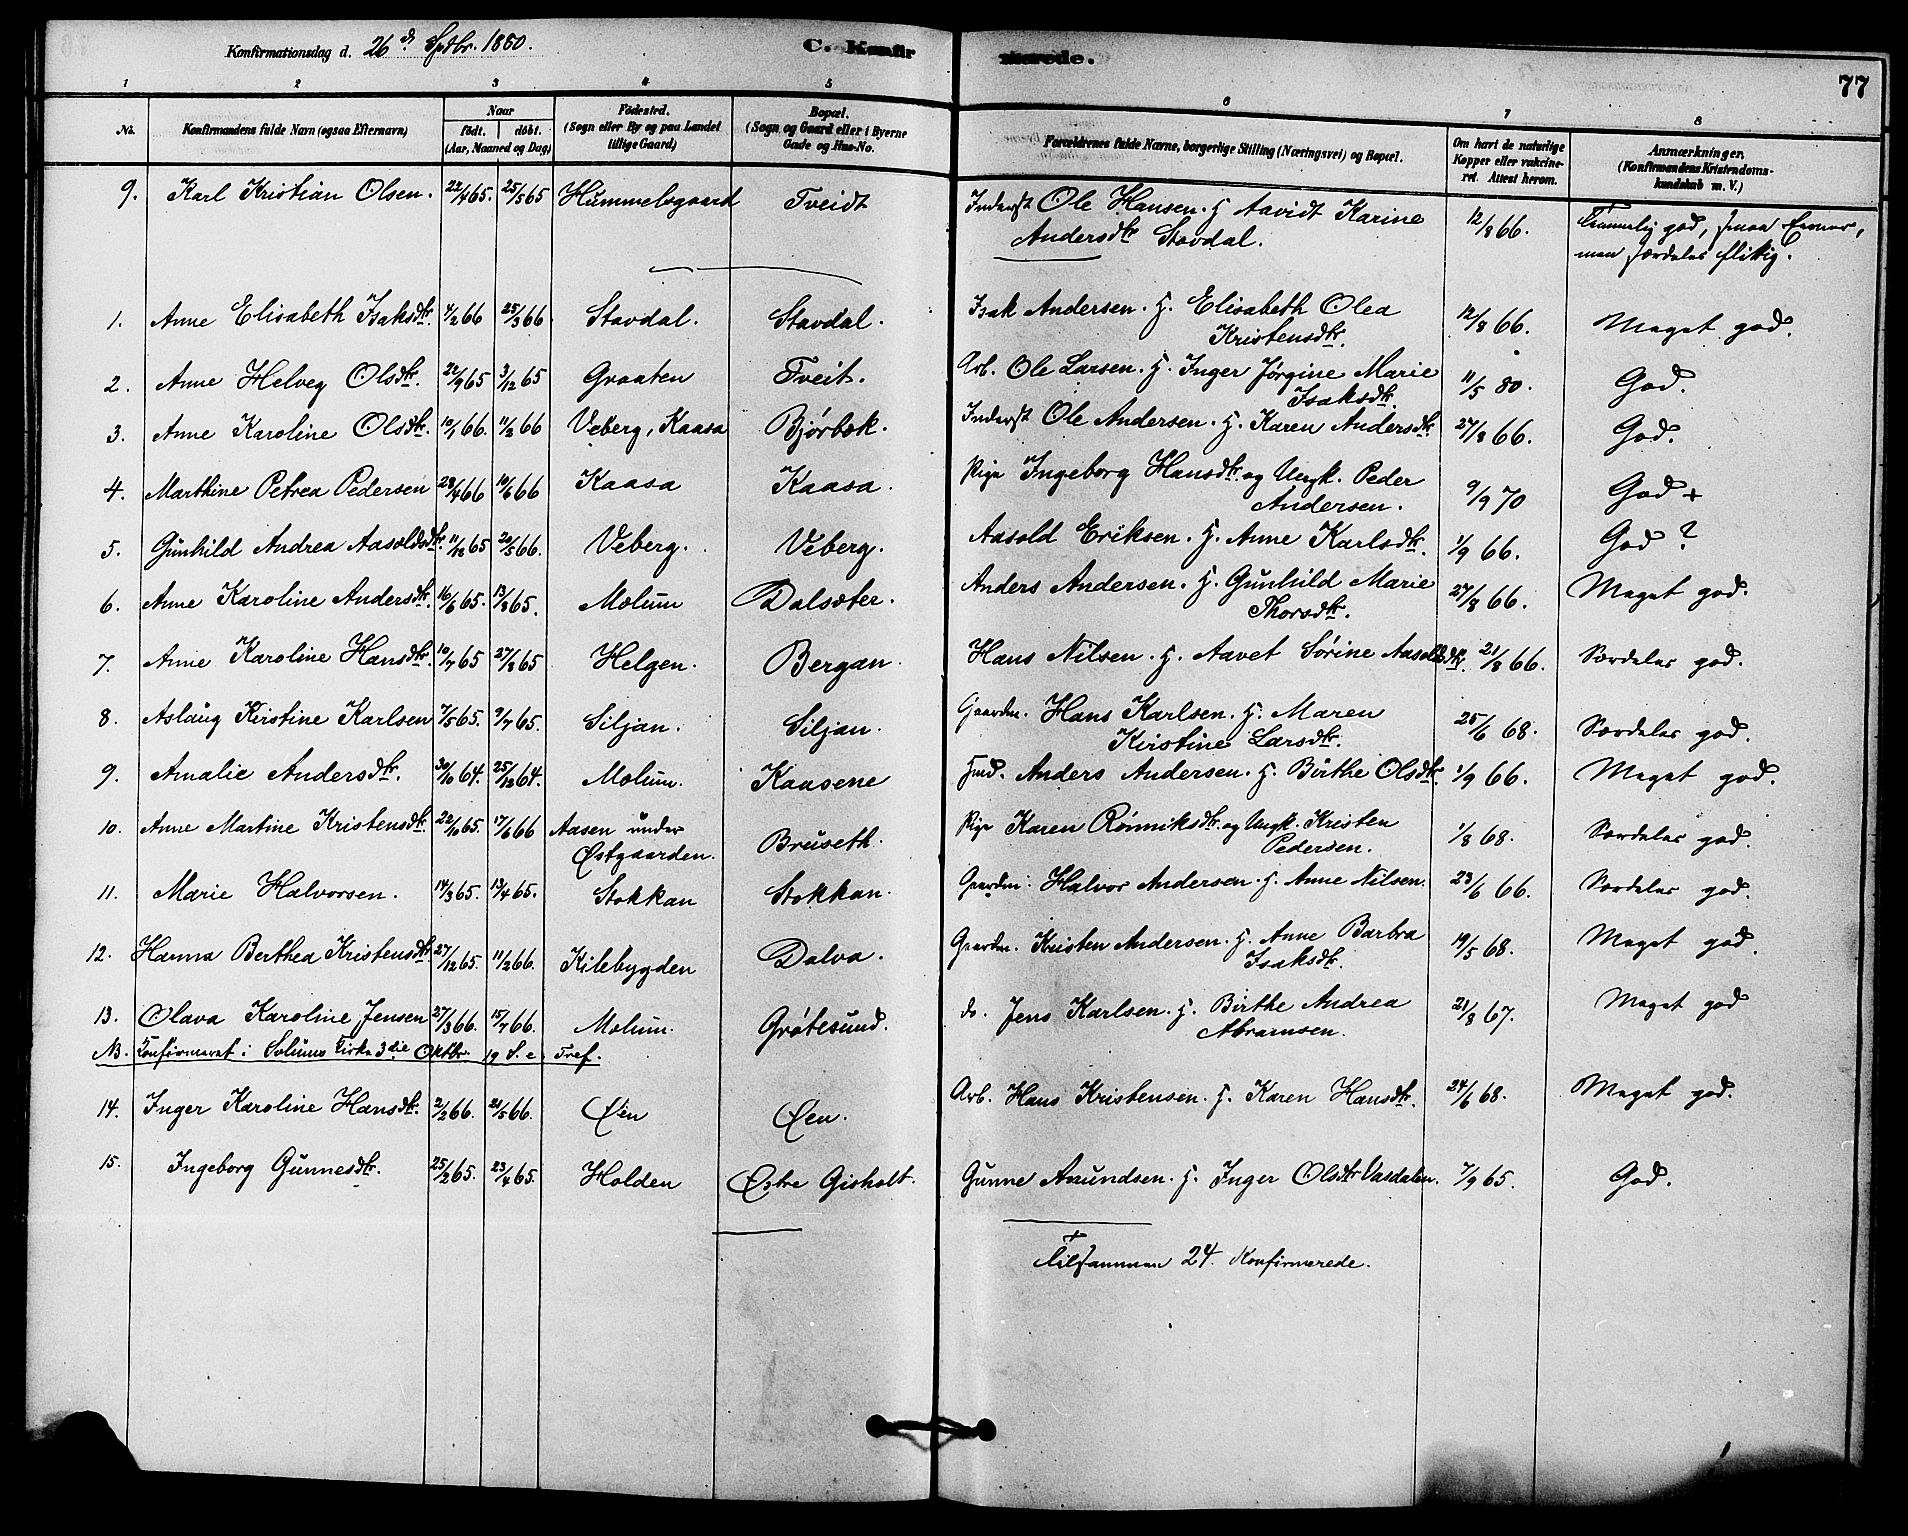 Konfirmationsdag d. 26de Septbr. 1880. C. Konfirmerede. 77
1 2 3 4 5 6 7 8
No. Konfirmandens fulde Navn (ogsaa Efternavn) Naar født. døbt. (Aar, Maaned og Dag) Fødested. (Sogn eller By og paa Landet tillige Gaard) Bopæl. (Sogn og Gaard eller i Byerne Gade og Hus-No. Forældrenes fulde Navne, borgerlige Stilling (Næringsvei) og Bopæl. Om havt de naturlige Kopper eller vakcineret. Attest herom. Anmærkninger. (Konfirmandens Kristendomskundskab m. V.)
9. Karl Kristian Olsen. 22/4 65. 25/5 65 Hummelsgaard Tveidt Inderst Ole Hansen. H Aavidt Karine 12/8 66. Temmelig god, smaa Evner,
Andersdtr Stavdal. men særdeles flittig.
1. Anne Elisabeth Isaksdtr. 4/2 66 25/3 66 Stavdal. Stavdal. Isak Andersen. H. Elisabeth Olea 12/8 66. Meget god.
Kristensdtr.
2. Anne Helveg Olsdtr. 22/9 65 3/12 65 Graaten Tveit. Arb. Ole Larsen. H. Inger Jørgine Marie 11/5 80. God.
Isaksdtr.
3. Anne Karoline Olsdtr. 10/1 66. 11/2 66 Veberg, Kaasa Bjørbæk. Inderst Ole Andersen. H. Karen Andersdtr 27/8 66. God.
4. Marthine Petrea Pedersen 28/4 66 10/6 66 Kaasa Kaasa. Pige Ingeborg Hansdtr. og Ungk. Peder 9/9 70 God +
Andersen.
5. Gunhild Andrea Aasoldsdtr. 11/10 65 20/5 66. Veberg. Veberg. Aasold Eriksen. H. Anne Karlsdtr. 1/9 66. God ?
6. Anne Karoline Andersdtr. 16/6 65. 13/8 65. Mælum Dalsæter. Anders Andersen. H. Gunhild Marie 27/8 66. Meget god.
Thorsdtr.
7. Anne Karoline Hansdtr. 10/7 65 27/8 65 Helgen. Bergan. Hans Nilsen. H. Aavet Sørine Aasoldsdtr. 21/8 66. Særdeles god.
8. Aslaug Kirstine Karlsen 7/5 65. 9/7 65. Siljan. Siljan. Gaardm. Hans Karlsen. H. Maren 25/6 68. Særdeles god.
Kirstine Larsdtr.
9. Amalie Andersdtr. 30/10 64. 25/12 64. Mælum. Kaasene Hmd. Anders Andersen. H. Birthe Olsdtr. 1/9 66. Meget god.
10. Anne Martine Kristensdtr. 22/10 65. 17/6 66 Aasen under Bruseth. Pige Karen Rönniksdtr. og Ungk. Kristen 1/8 68. Særdeles god.
Østgaarden. Pedersen.
11. Marie Halvorsen. 14/3 65. 13/4 65. Stokkan Stokkan. Gaardm. Halvor Andersen. H. Anne Nilsen. 23/6 66. Særdeles god.
12. Hanna Berthea Kristensdtr. 27/12 65. 11/2 66. Kilebygden Dalva. Gaardm. Kristen Andersen. H. Anne Barbra 19/5 68. Meget god.
Isaksdtr.
13. Olava Karoline Jensen 27/3 66. 15/7 66. Mælum. Grøtesund. do. Jens Karlsen. H. Birthe Andrea 21/8 67. Meget god
Abramsen.
NB. Konfirmeret i Solums Kirke 3die Oktbr. 19 S. e. Tref.
14. Inger Karoline Hansdtr. 2/2 66. 21/5 66. Øen Øen. Arb. Hans Kristensen. H. Karen Hansdtr. 24/6 68. Meget god.
15. Ingeborg Gunnesdtr. 25/2 65. 23/4 65. Holden Østre Gisholt. Gunne Amundsen. H. Inger Olsdtr Vasdalen. 7/9 65. God.
Tilsammen 24 Konfirmerede.